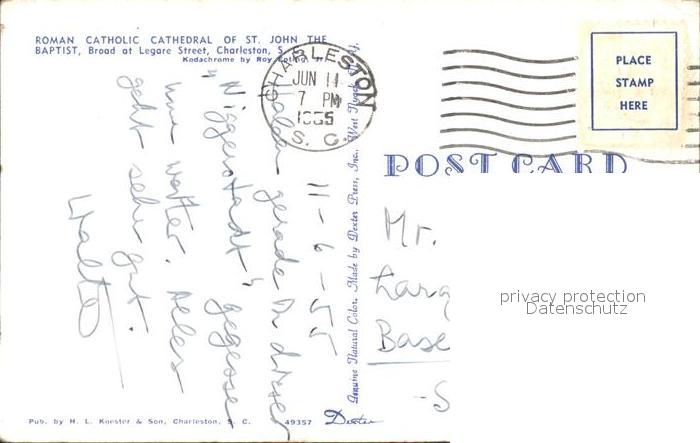 ROMAN CATHOLIC CATHEDRAL OF ST. JOHN THE
BAPTIST, Broad at Legare Street, Charleston, S.
Kodachrome by Roy
CHARLESTON
JUN 11
7 PM
1955
S. C.
PLACE
STAMP
HERE
POST CARD
11-6-55
Haben gerade in dieser
"Niggerstadt" gegessen
nun weiter. Alles
geht sehr gut.
Walter
Genuine Natural Color. Made by Dexter Press, Inc., West Nyack, N.Y.
Mr.
Larg
Base
-S
privacy protection
Datenschutz
Pub. by H. L. Koester & Son, Charleston, S. C.
49357
Dexter